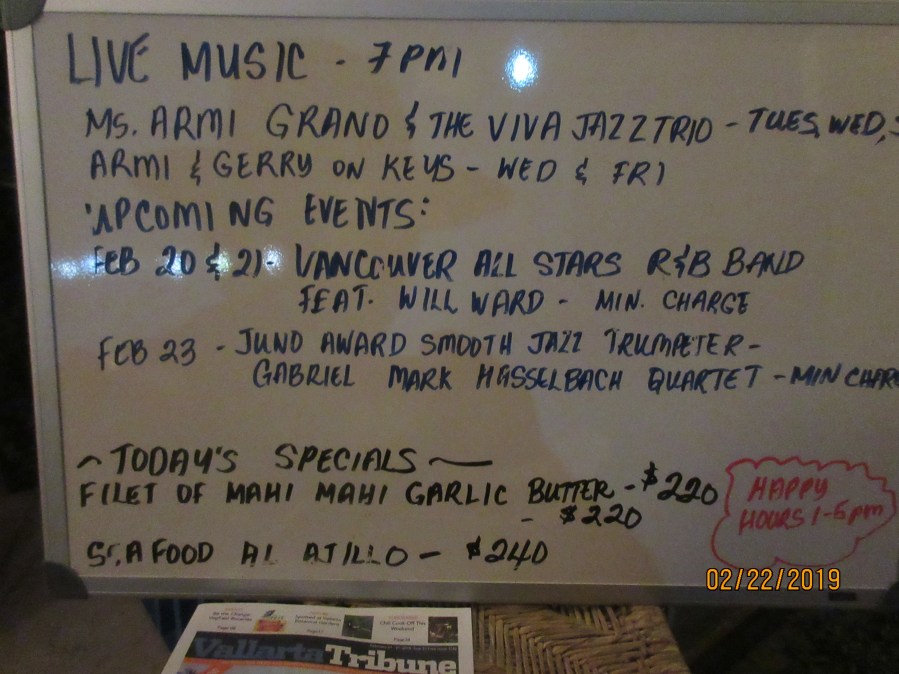 LIVE MUSIC - 7PM
MS. ARMI GRANO & THE VIVA JAZZ TRIO - TUES, WED,
ARMI & GERRY ON KEYS - WED & FRI
UPCOMING EVENTS:
FEB 20 & 21 - VANCOUVER ALL STARS R&B BAND
FEAT. WILL WARD - MIN. CHARGE
FEB 23 - JUNO AWARD SMOOTH JAZZ TRUMPETER -
GABRIEL MARK HASSELBACH QUARTET - MIN CHAR
~ TODAY'S SPECIALS ~
FILET OF MAHI MAHI GARLIC BUTTER - $220
- $220
SEAFOOD AL AJILLO - $240
HAPPY
HOURS 1-5pm
02/22/2019
Chili Cook Off This
Weekend
Vallarta Tribune